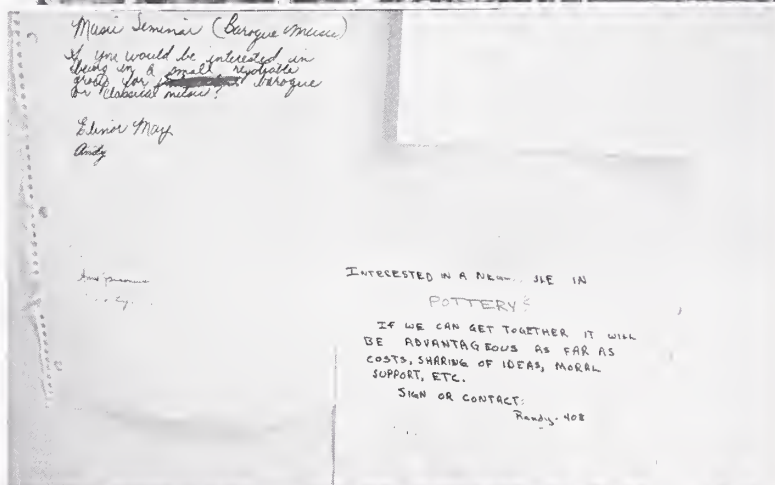 Music Seminar (Baroque Music)
If you would be interested in
being in a small negotiable
group for baroque
or classical music?
Elinor May
Andy
INTERESTED IN A IN
POTTERY?
IF WE CAN GET TOGETHER IT WILL
BE ADVANTAGEOUS AS FAR AS
COSTS, SHARING OF IDEAS, MORAL
SUPPORT, ETC.
SIGN OR CONTACT:
Randy-408